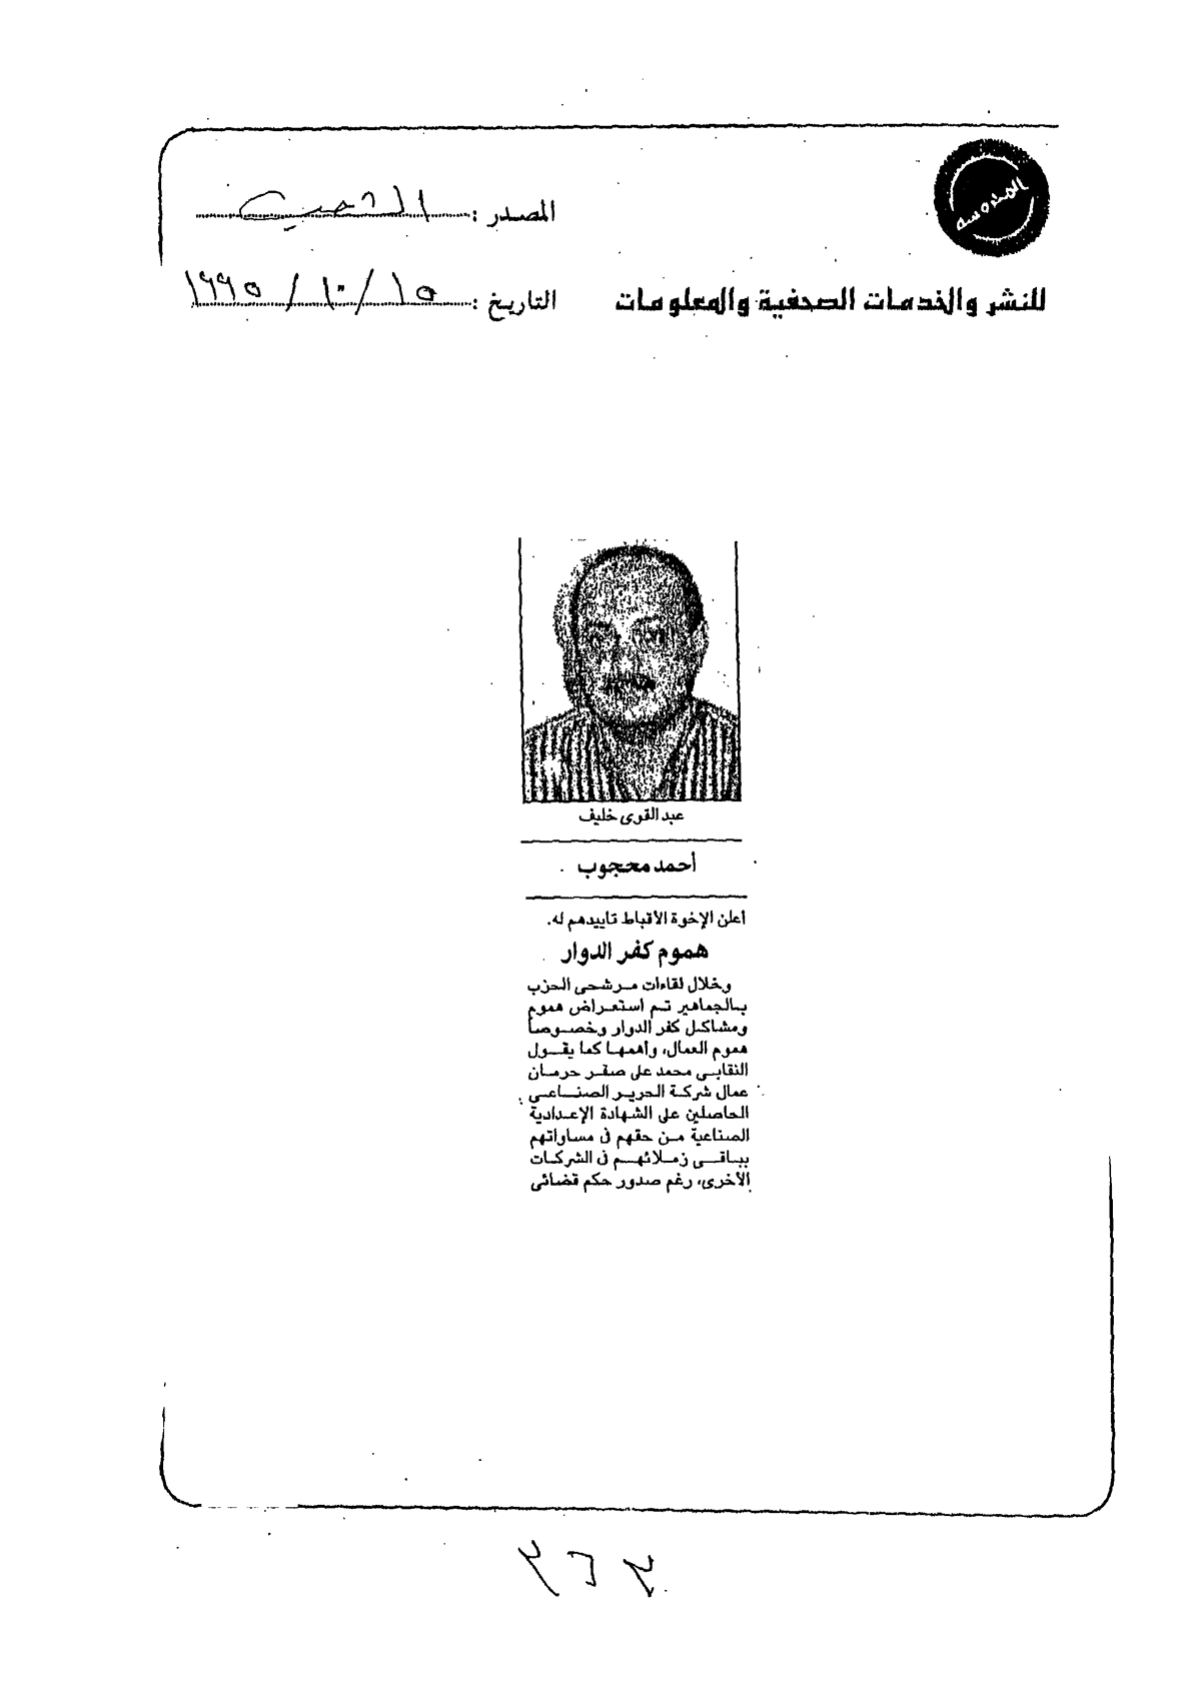 المحروسة
للنشر والخدمات الصحفية والمعلومات
المصدر : الشعب
التاريخ : ١٥ / ١٠ / ١٩٩٥
عبد القوى خليف
أحمد محجوب
أعلن الإخوة الأقباط تأييدهم له.
هموم كفر الدوار
وخلال لقاءات مرشحى الحزب
بالجماهير تم استعراض هموم
ومشاكل كفر الدوار وخصوصاً
هموم العمال، وأهمها كما يقول
النقابى محمد على صقر حرمان
عمال شركة الحرير الصناعى
الحاصلين على الشهادة الإعدادية
الصناعية من حقهم فى مساواتهم
بباقى زملائهم فى الشركات
الأخرى، رغم صدور حكم قضائى